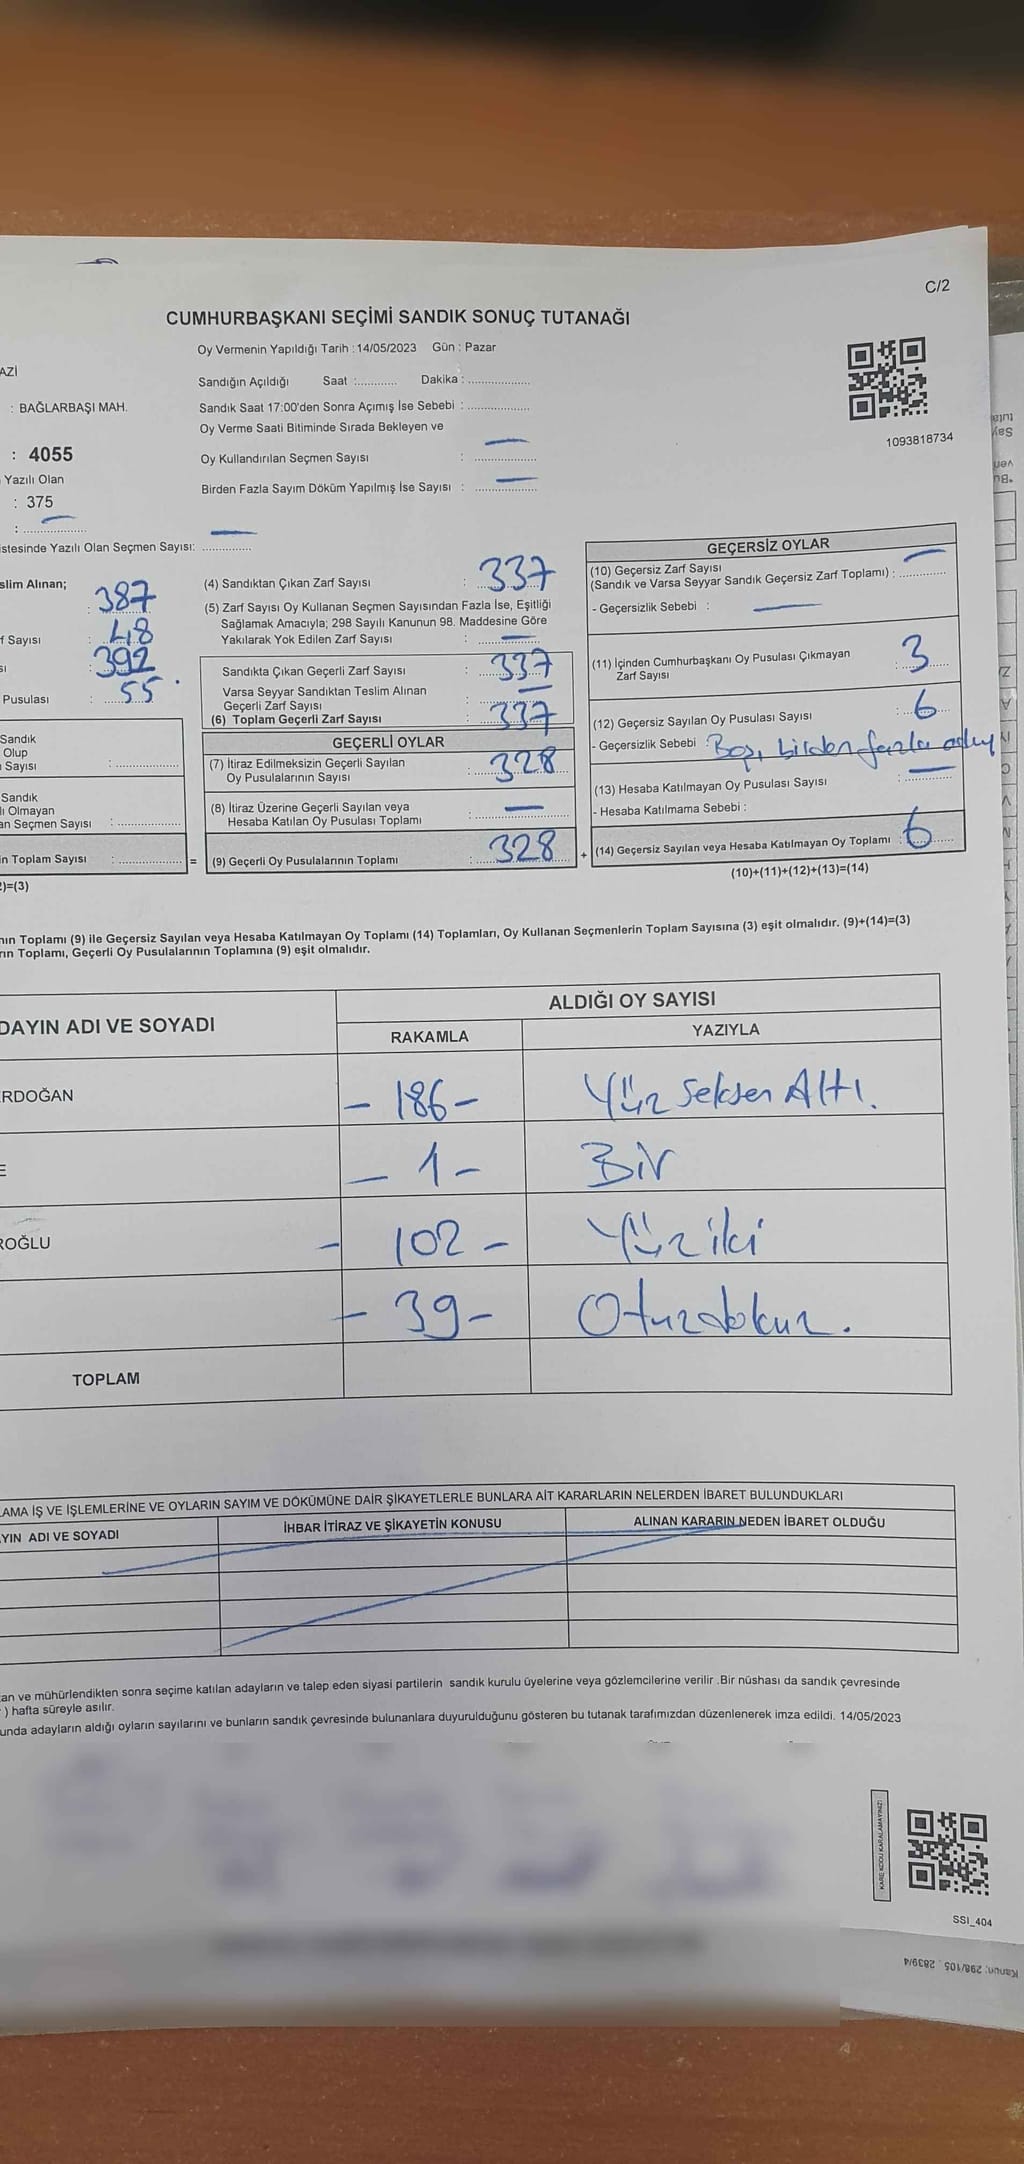 C/2
CUMHURBAŞKANI SEÇİMİ SANDIK SONUÇ TUTANAĞI
Oy Vermenin Yapıldığı Tarih : 14/05/2023 Gün : Pazar
AZİ
Sandığın Açıldığı Saat :............ Dakika :..................
: BAĞLARBAŞI MAH.
Sandık Saat 17:00'den Sonra Açımış İse Sebebi :..................
Oy Verme Saati Bitiminde Sırada Bekleyen ve
1093818734
: 4055
Oy Kullandırılan Seçmen Sayısı : —
Yazılı Olan
Birden Fazla Sayım Döküm Yapılmış İse Sayısı : —
: 375
: —
istesinde Yazılı Olan Seçmen Sayısı: —
slim Alınan;
: 387
f Sayısı : 48
sı : 392
Pusulası : 55.
Sandık
Olup
Sayısı :..................
Sandık
lı Olmayan
an Seçmen Sayısı :..................
n Toplam Sayısı :.................. =
2)=(3)
(4) Sandıktan Çıkan Zarf Sayısı : 337
(5) Zarf Sayısı Oy Kullanan Seçmen Sayısından Fazla İse, Eşitliği
Sağlamak Amacıyla; 298 Sayılı Kanunun 98. Maddesine Göre
Yakılarak Yok Edilen Zarf Sayısı : —
Sandıkta Çıkan Geçerli Zarf Sayısı : 337
Varsa Seyyar Sandıktan Teslim Alınan
Geçerli Zarf Sayısı : —
(6) Toplam Geçerli Zarf Sayısı : 337
GEÇERLİ OYLAR
(7) İtiraz Edilmeksizin Geçerli Sayılan
Oy Pusulalarının Sayısı : 328
(8) İtiraz Üzerine Geçerli Sayılan veya
Hesaba Katılan Oy Pusulası Toplamı : —
(9) Geçerli Oy Pusulalarının Toplamı : 328 +
GEÇERSİZ OYLAR
(10) Geçersiz Zarf Sayısı
(Sandık ve Varsa Seyyar Sandık Geçersiz Zarf Toplamı) : —
- Geçersizlik Sebebi : —
(11) İçinden Cumhurbaşkanı Oy Pusulası Çıkmayan
Zarf Sayısı : 3
(12) Geçersiz Sayılan Oy Pusulası Sayısı : 6
- Geçersizlik Sebebi : Boş, birden fazla
(13) Hesaba Katılmayan Oy Pusulası Sayısı : —
- Hesaba Katılmama Sebebi :
(14) Geçersiz Sayılan veya Hesaba Katılmayan Oy Toplamı : 6
(10)+(11)+(12)+(13)=(14)
nın Toplamı (9) ile Geçersiz Sayılan veya Hesaba Katılmayan Oy Toplamı (14) Toplamları, Oy Kullanan Seçmenlerin Toplam Sayısına (3) eşit olmalıdır. (9)+(14)=(3)
rın Toplamı, Geçerli Oy Pusulalarının Toplamına (9) eşit olmalıdır.
DAYIN ADI VE SOYADI
ALDIĞI OY SAYISI
RAKAMLA YAZIYLA
RDOĞAN - 186 - Yüz Seksen Altı.
E - 1 - Bir
ROĞLU - 102 - Yüz iki
- 39 - Otuzdokuz.
TOPLAM
LAMA İŞ VE İŞLEMLERİNE VE OYLARIN SAYIM VE DÖKÜMÜNE DAİR ŞİKAYETLERLE BUNLARA AİT KARARLARIN NELERDEN İBARET BULUNDUKLARI
YIN ADI VE SOYADI İHBAR İTİRAZ VE ŞİKAYETİN KONUSU ALINAN KARARIN NEDEN İBARET OLDUĞU
an ve mühürlendikten sonra seçime katılan adayların ve talep eden siyasi partilerin sandık kurulu üyelerine veya gözlemcilerine verilir .Bir nüshası da sandık çevresinde
) hafta süreyle asılır.
unda adayların aldığı oyların sayılarını ve bunların sandık çevresinde bulunanlara duyurulduğunu gösteren bu tutanak tarafımızdan düzenlenerek imza edildi. 14/05/2023
KARE KODU KARALAMAYINIZ!
SSI_404
Kanun: 298/105 : 2839/4